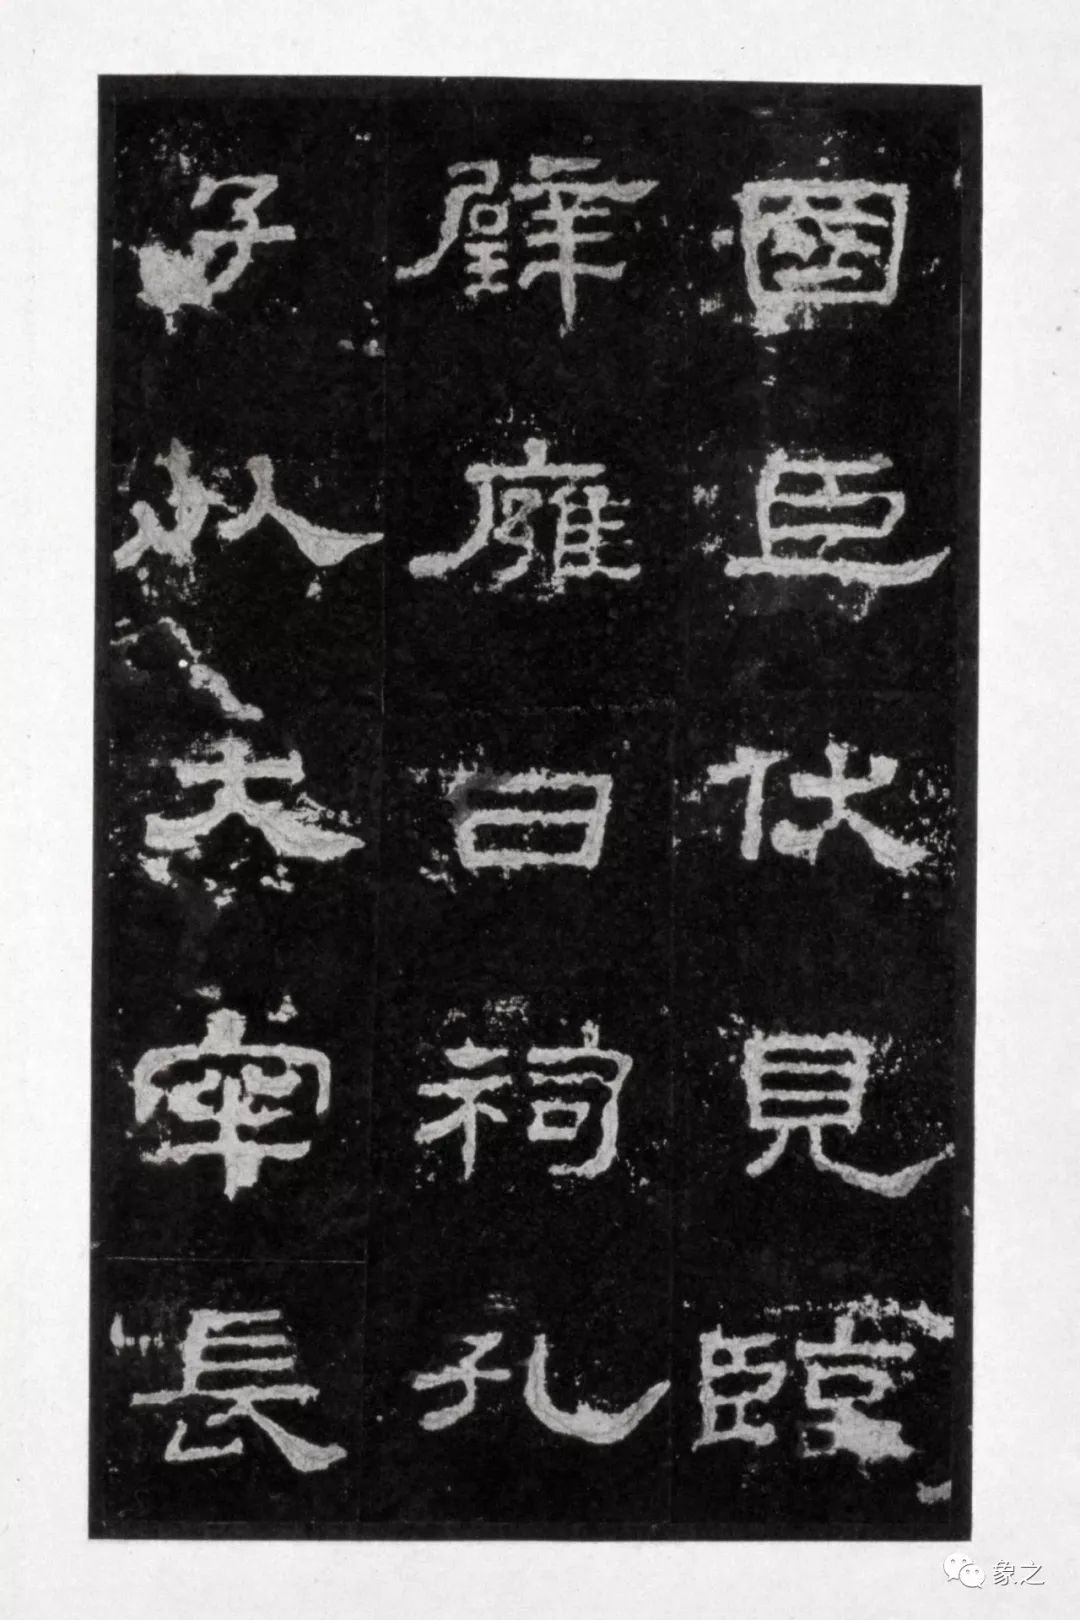 國臣伏見臨
辟雍日祠孔
子以大宰長
象之